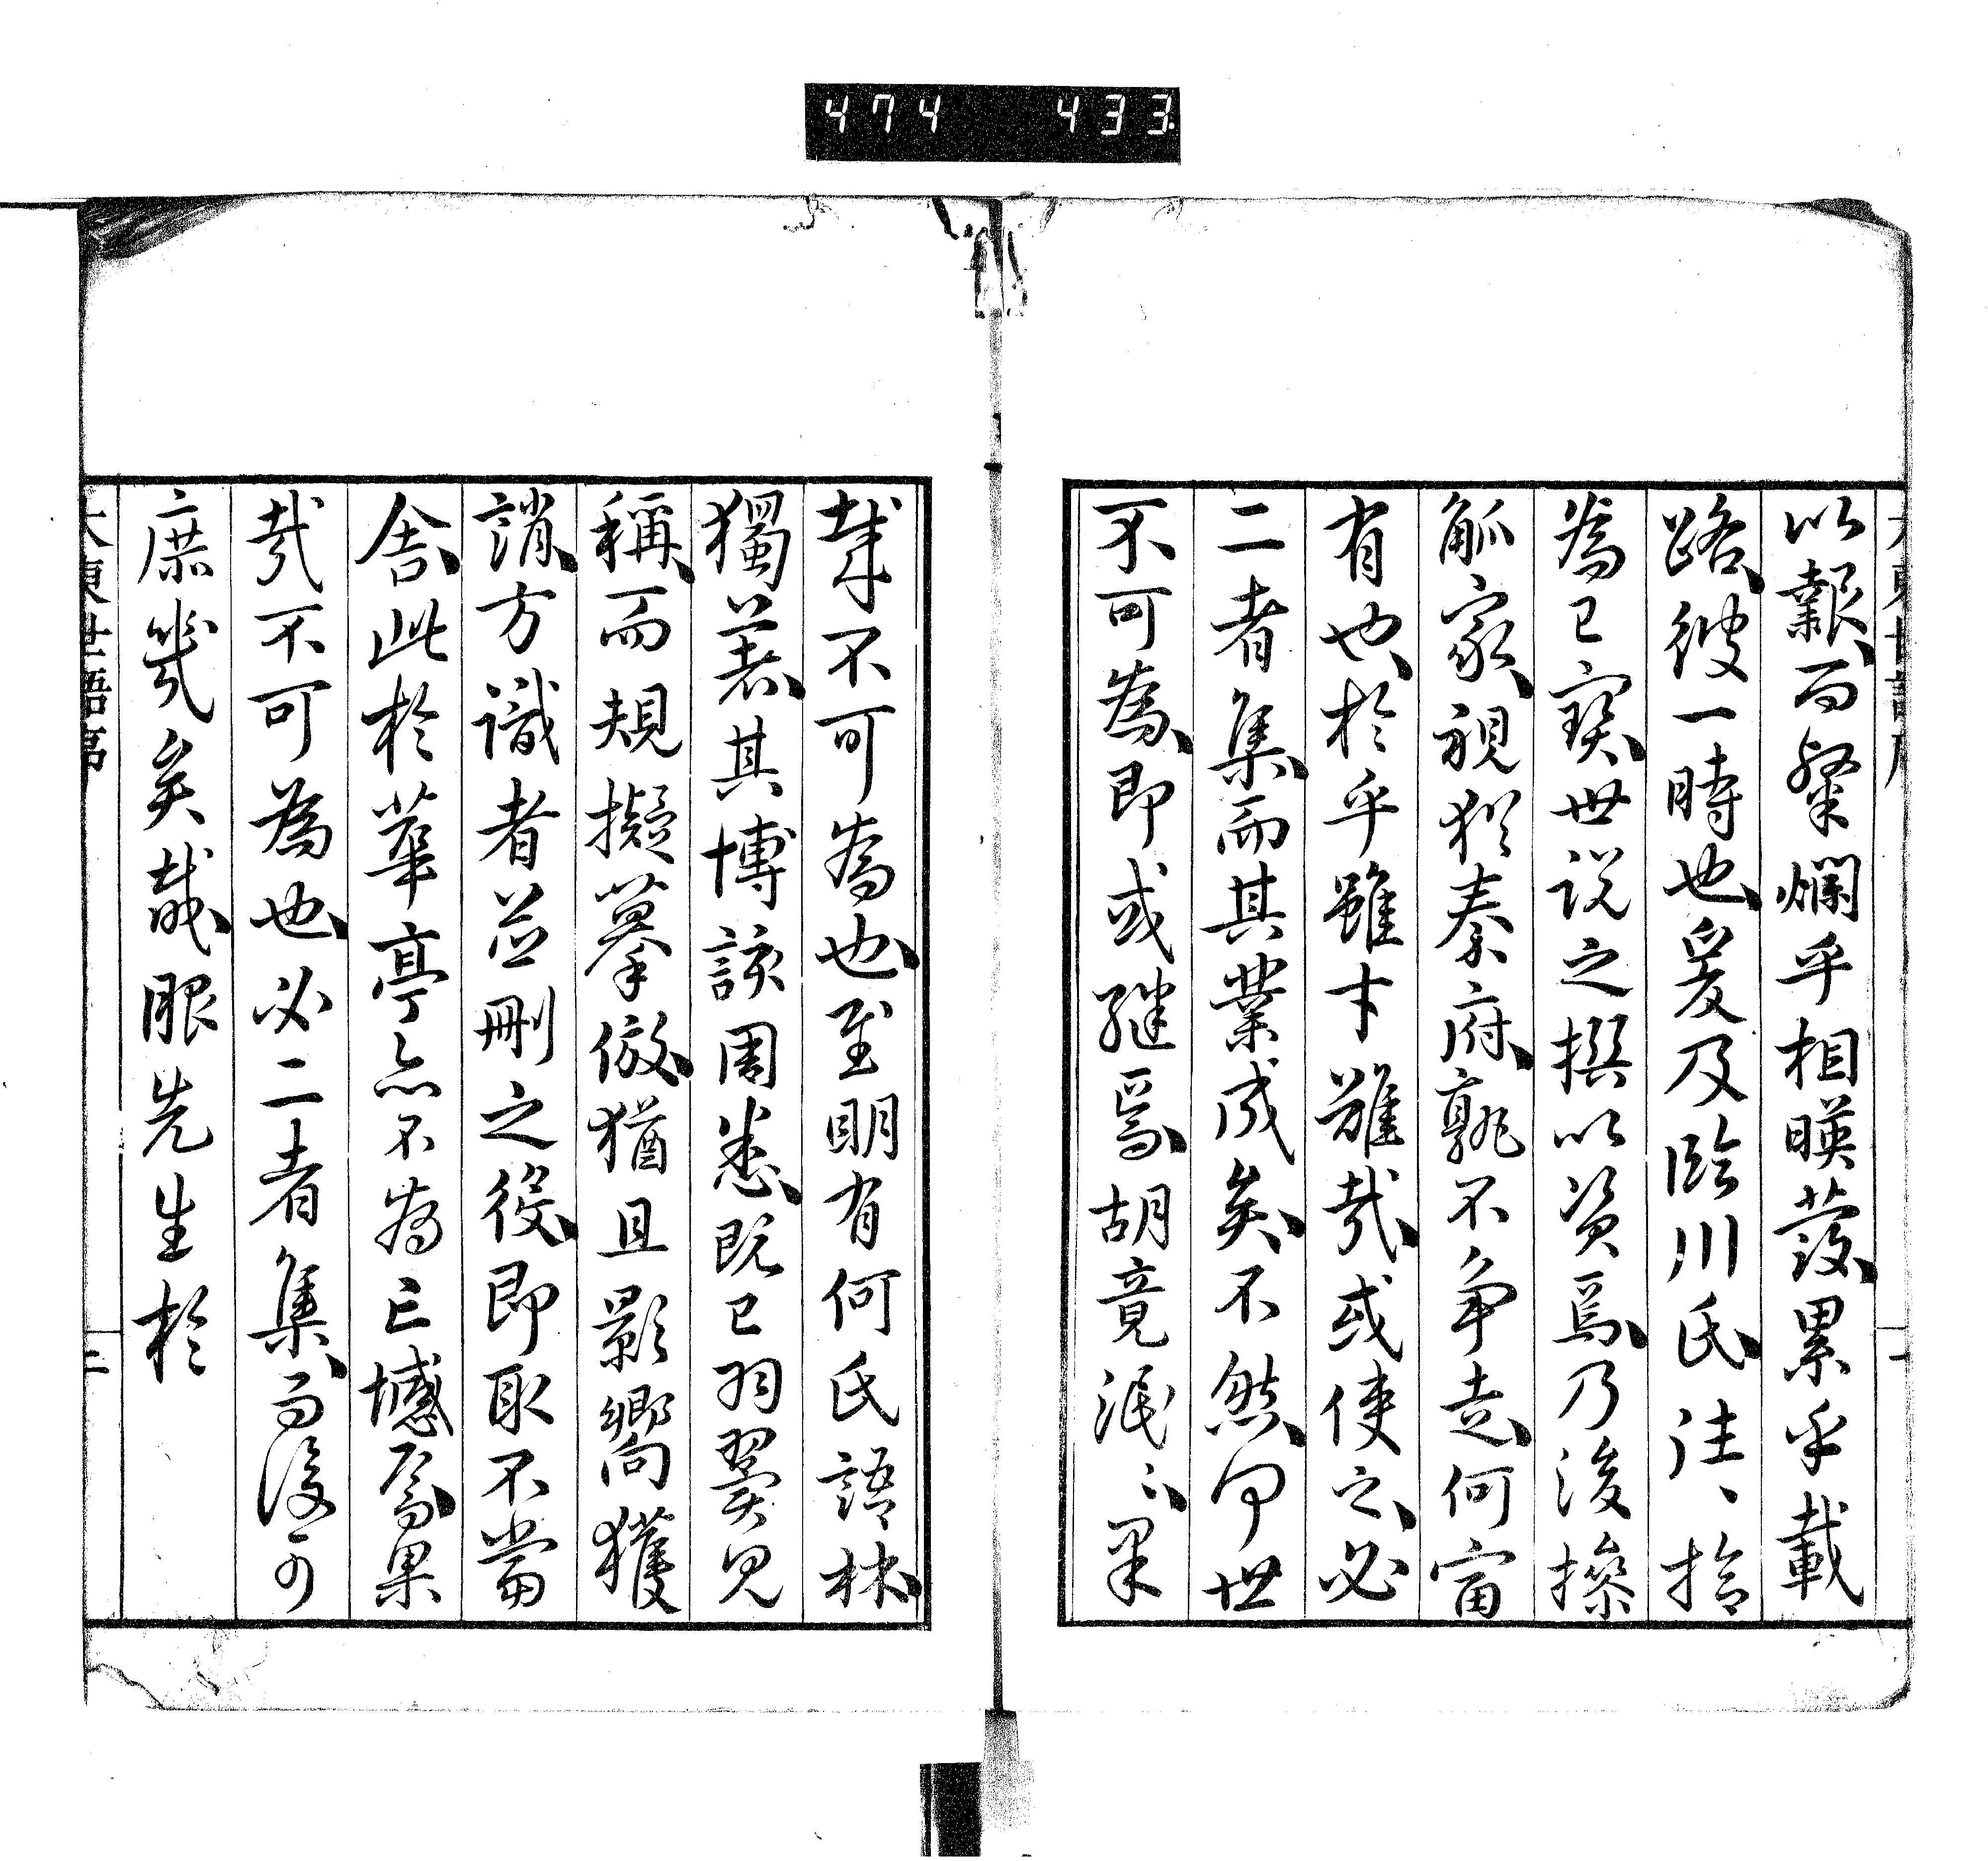 474 433
以艱而粲爛乎相暎發累乎載
路彼一時也爰及臨川氏往〻拾
為己寶世説之撰以資焉乃後操
觚家視猶秦府孰不争走何富
有也於乎雖才難哉或使之必
二者集而其業成矣不然曰世
不可為即或継焉胡竟泯〻果
哉不可為也至明有何氏語林
獨著其博該周悉既已羽翼見
稱而規擬摹倣猶且影嚮獲
誚方識者並刪之役即取不當
舍此於華亭亦不為亡憾焉果
哉不可為也必二者集而後可
庶幾矣哉服先生於
大東世語序